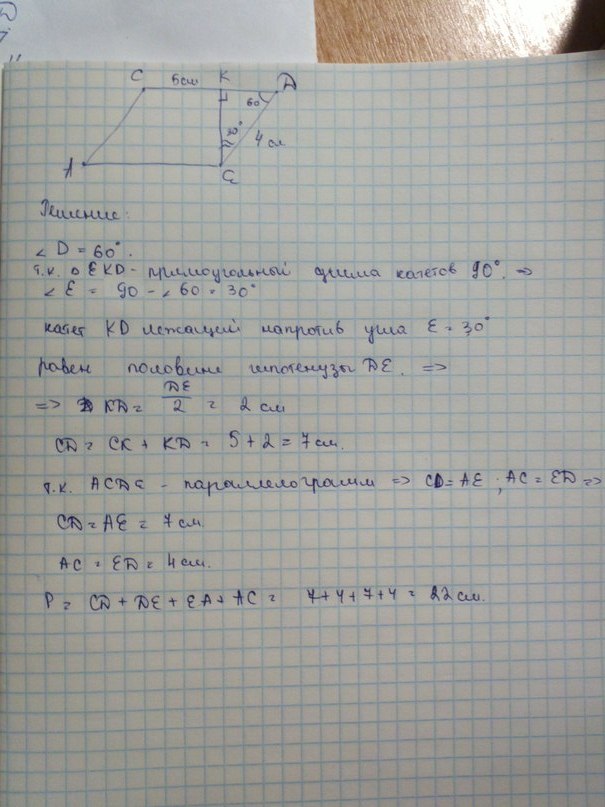 D
C 5см K D
60
30°
4 см
A E
Решение:
∠D = 60°.
т.к. △ EKD - прямоугольный сумма катетов 90°. =>
∠E = 90 - ∠60 = 30°
катет KD лежащий напротив угла E = 30°
равен половине гипотенузы DE. =>
=> KD = DE/2 = 2 см
CD = CK + KD = 5 + 2 = 7 см.
т.к. ACDE - параллелограмм => CD = AE ; AC = ED =>
CD = AE = 7 см.
AC = ED = 4 см.
P = CD + DE + EA + AC = 7+4+7+4 = 22 см.